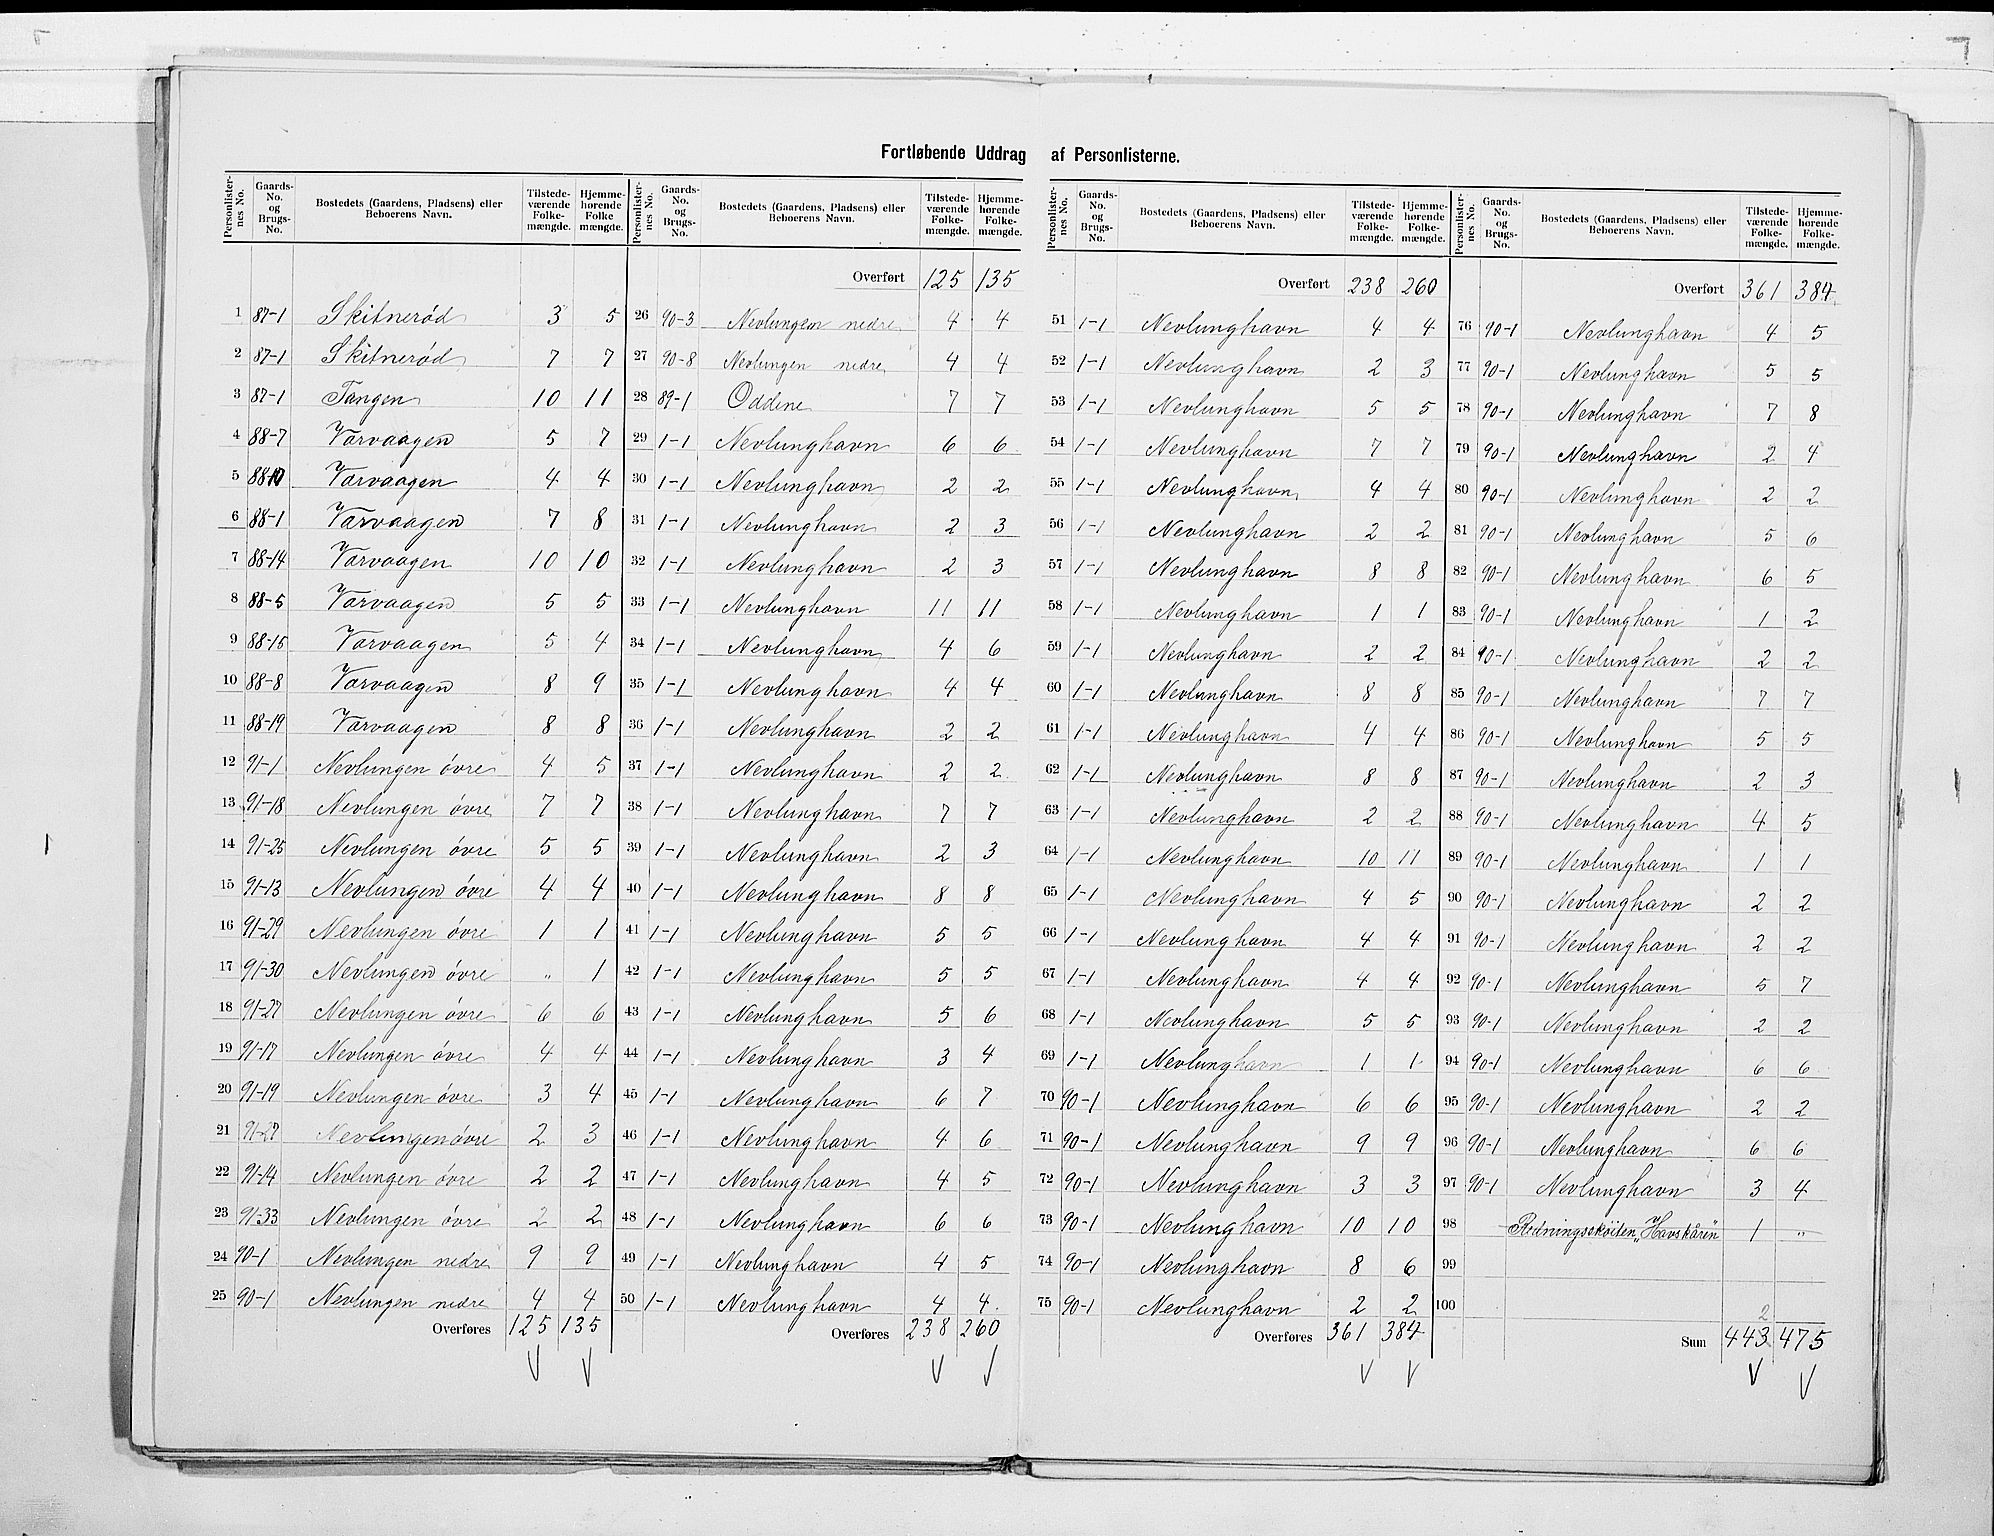 Fortløbende Uddrag af Personlisterne.
Personlister-nes No. | Gaards-No. og Brugs-No. | Bostedets (Gaardens, Pladsens) eller Beboerens Navn. | Tilstede-værende Folke-mængde. | Hjemme-hørende Folke mængde.
1 87-1 Skitnerød 3 5
2 87-1 Skitnerød 7 7
3 87-1 Tangen 10 11
4 88-7 Varvaagen 5 7
5 88-10 Varvaagen 4 4
6 88-1 Varvaagen 7 8
7 88-14 Varvaagen 10 10
8 88-5 Varvaagen 5 5
9 88-15 Varvaagen 5 4
10 88-8 Varvaagen 8 9
11 88-19 Varvaagen 8 8
12 91-1 Nevlungen óvre 4 5
13 91-18 Nevlungen óvre 7 7
14 91-25 Nevlungen óvre 5 5
15 91-13 Nevlungen óvre 4 4
16 91-29 Nevlungen óvre 1 1
17 91-30 Nevlungen óvre " 1
18 91-27 Nevlungen óvre 6 6
19 91-17 Nevlungen óvre 4 4
20 91-19 Nevlungen óvre 3 4
21 91-27 Nevlungen óvre 2 3
22 91-14 Nevlungen óvre 2 2
23 91-33 Nevlungen óvre 2 2
24 90-1 Nevlungen nedre 9 9
25 90-1 Nevlungen nedre 4 4
Overføres 125 135
Personlister-nes No. | Gaards-No. og Brugs-No. | Bostedets (Gaardens, Pladsens) eller Beboerens Navn. | Tilstede-værende Folke-mængde. | Hjemme-hørende Folke-mængde.
Overført 125 135
26 90-3 Nevlungen nedre 4 4
27 90-8 Nevlungen nedre 4 4
28 89-1 Oddene 7 7
29 1-1 Nevlunghavn 6 6
30 1-1 Nevlunghavn 2 2
31 1-1 Nevlunghavn 2 3
32 1-1 Nevlunghavn 2 3
33 1-1 Nevlunghavn 11 11
34 1-1 Nevlunghavn 4 6
35 1-1 Nevlunghavn 4 4
36 1-1 Nevlunghavn 2 2
37 1-1 Nevlunghavn 2 2
38 1-1 Nevlunghavn 7 7
39 1-1 Nevlunghavn 2 3
40 1-1 Nevlunghavn 8 8
41 1-1 Nevlunghavn 5 5
42 1-1 Nevlunghavn 5 5
43 1-1 Nevlunghavn 5 6
44 1-1 Nevlunghavn 3 4
45 1-1 Nevlunghavn 6 7
46 1-1 Nevlunghavn 4 6
47 1-1 Nevlunghavn 4 5
48 1-1 Nevlunghavn 6 6
49 1-1 Nevlunghavn 4 5
50 1-1 Nevlunghavn 4 4
Overføres 238 260
Personlister-nes No. | Gaards-No. og Brugs-No. | Bostedets (Gaardens, Pladsens) eller Beboerens Navn. | Tilstede-værende Folke-mængde. | Hjemme-hørende Folke-mængde.
Overført 238 260
51 1-1 Nevlunghavn 4 4
52 1-1 Nevlunghavn 2 3
53 1-1 Nevlunghavn 5 5
54 1-1 Nevlunghavn 7 7
55 1-1 Nevlunghavn 4 4
56 1-1 Nevlunghavn 2 2
57 1-1 Nevlunghavn 8 8
58 1-1 Nevlunghavn 1 1
59 1-1 Nevlunghavn 2 2
60 1-1 Nevlunghavn 8 8
61 1-1 Nevlunghavn 4 4
62 1-1 Nevlunghavn 8 8
63 1-1 Nevlunghavn 2 2
64 1-1 Nevlunghavn 10 11
65 1-1 Nevlunghavn 4 5
66 1-1 Nevlunghavn 4 4
67 1-1 Nevlunghavn 4 4
68 1-1 Nevlunghavn 5 5
69 1-1 Nevlunghavn 1 1
70 90-1 Nevlunghavn 6 6
71 90-1 Nevlunghavn 9 9
72 90-1 Nevlunghavn 3 3
73 90-1 Nevlunghavn 10 10
74 90-1 Nevlunghavn 8 6
75 90-1 Nevlunghavn 2 2
Overføres 361 384
Personlister-nes No. | Gaards-No. og Brugs-No. | Bostedets (Gaardens, Pladsens) eller Beboerens Navn. | Tilstede-værende Folke-mængde. | Hjemme-hørende Folke-mængde.
Overført 361 384
76 90-1 Nevlunghavn 4 5
77 90-1 Nevlunghavn 5 5
78 90-1 Nevlunghavn 7 8
79 90-1 Nevlunghavn 2 4
80 90-1 Nevlunghavn 2 2
81 90-1 Nevlunghavn 5 6
82 90-1 Nevlunghavn 6 5
83 90-1 Nevlunghavn 1 2
84 90-1 Nevlunghavn 2 2
85 90-1 Nevlunghavn 7 7
86 90-1 Nevlunghavn 5 5
87 90-1 Nevlunghavn 2 3
88 90-1 Nevlunghavn 4 5
89 90-1 Nevlunghavn 1 1
90 90-1 Nevlunghavn 2 2
91 90-1 Nevlunghavn 2 2
92 90-1 Nevlunghavn 5 7
93 90-1 Nevlunghavn 2 2
94 90-1 Nevlunghavn 6 6
95 90-1 Nevlunghavn 2 2
96 90-1 Nevlunghavn 6 6
97 90-1 Nevlunghavn 3 4
98 Redningsskóiten „Havskåren" 1 "
99
100
2
Sum 443 475